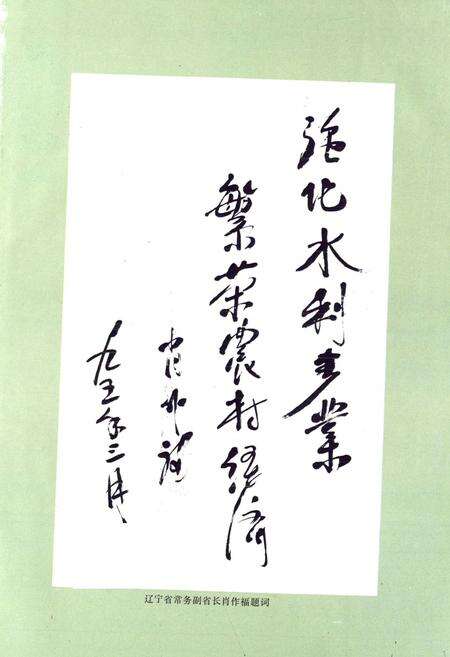 强化水利事业
繁荣农村经济
肖作福
九五年三月
辽宁省常务副省长肖作福题词